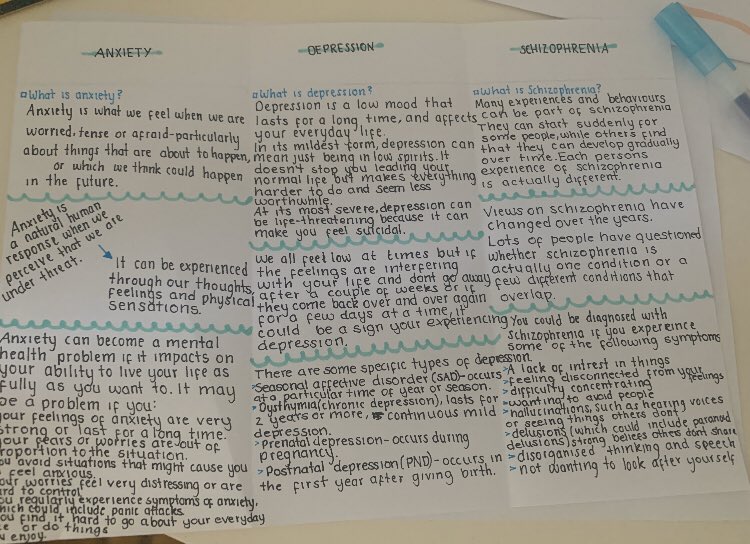 ANXIETY
What is anxiety?
Anxiety is what we feel when we are
worried, tense or afraid-particularly
about things that are about to happen,
or which we think could happen
in the future.
Anxiety is
a natural human
response when we
perceive that we are
under threat.
It can be experienced
through our thoughts,
feelings and physical
sensations.
Anxiety can become a mental
health problem if it impacts on
your ability to live your life as
fully as you want to. It may
be a problem if you:
your feelings of anxiety are very
strong or last for a long time.
your fears or worries are out of
proportion to the situation.
you avoid situations that might cause you
feel anxious
your worries feel very distressing or are
hard to control
you regularly experience symptoms of anxiety,
which could include panic attacks
you find it hard to go about your everyday
or do things
enjoy.
DEPRESSION
What is depression?
Depression is a low mood that
lasts for a long time, and affects
your everyday life.
In its mildest form, depression can
mean just being in low spirits. It
doesn't stop you leading your
normal life but makes everything
harder to do and seem less
worthwhile.
At its most severe, depression can
be life-threatening because it can
make you feel suicidal.
We all feel low at times but if
the feelings are interfering
with your life and dont go away
after a couple of weeks or if
they come back over and over again
for a few days at a time, it
could be a sign your experiencing
depression.
There are some specific types of depression.
> Seasonal affective disorder (SAD)-occurs
at a particular time of year or season.
> Dysthymia (chronic depression), lasts for
2 years or more, continuous mild
depression.
> Prenatal depression-occurs during
pregnancy.
> Postnatal depression (PND)-occurs in
the first year after giving birth.
SCHIZOPHRENIA
What is Schizophrenia?
Many experiences and behaviours
can be part of schizophrenia
They can start suddenly for
some people, while others find
that they can develop gradually
over time. Each persons
experience of schizophrenia
is actually different.
Views on schizophrenia have
changed over the years.
Lots of people have questioned
whether schizophrenia is
actually one condition or a
few different conditions that
overlap.
You could be diagnosed with
Schizophrenia if you expereince
some of the following symptoms
> A lack of intrest in things
> feeling disconnected from your feelings
> difficulty concentrating
> wanting to avoid people
> hallucinations, such as hearing voices
or seeing things others dont
> delusions (which could include paranoid
delusions) strong beliefs others dont share
> disorganised thinking and speech
> not wanting to look after yourself